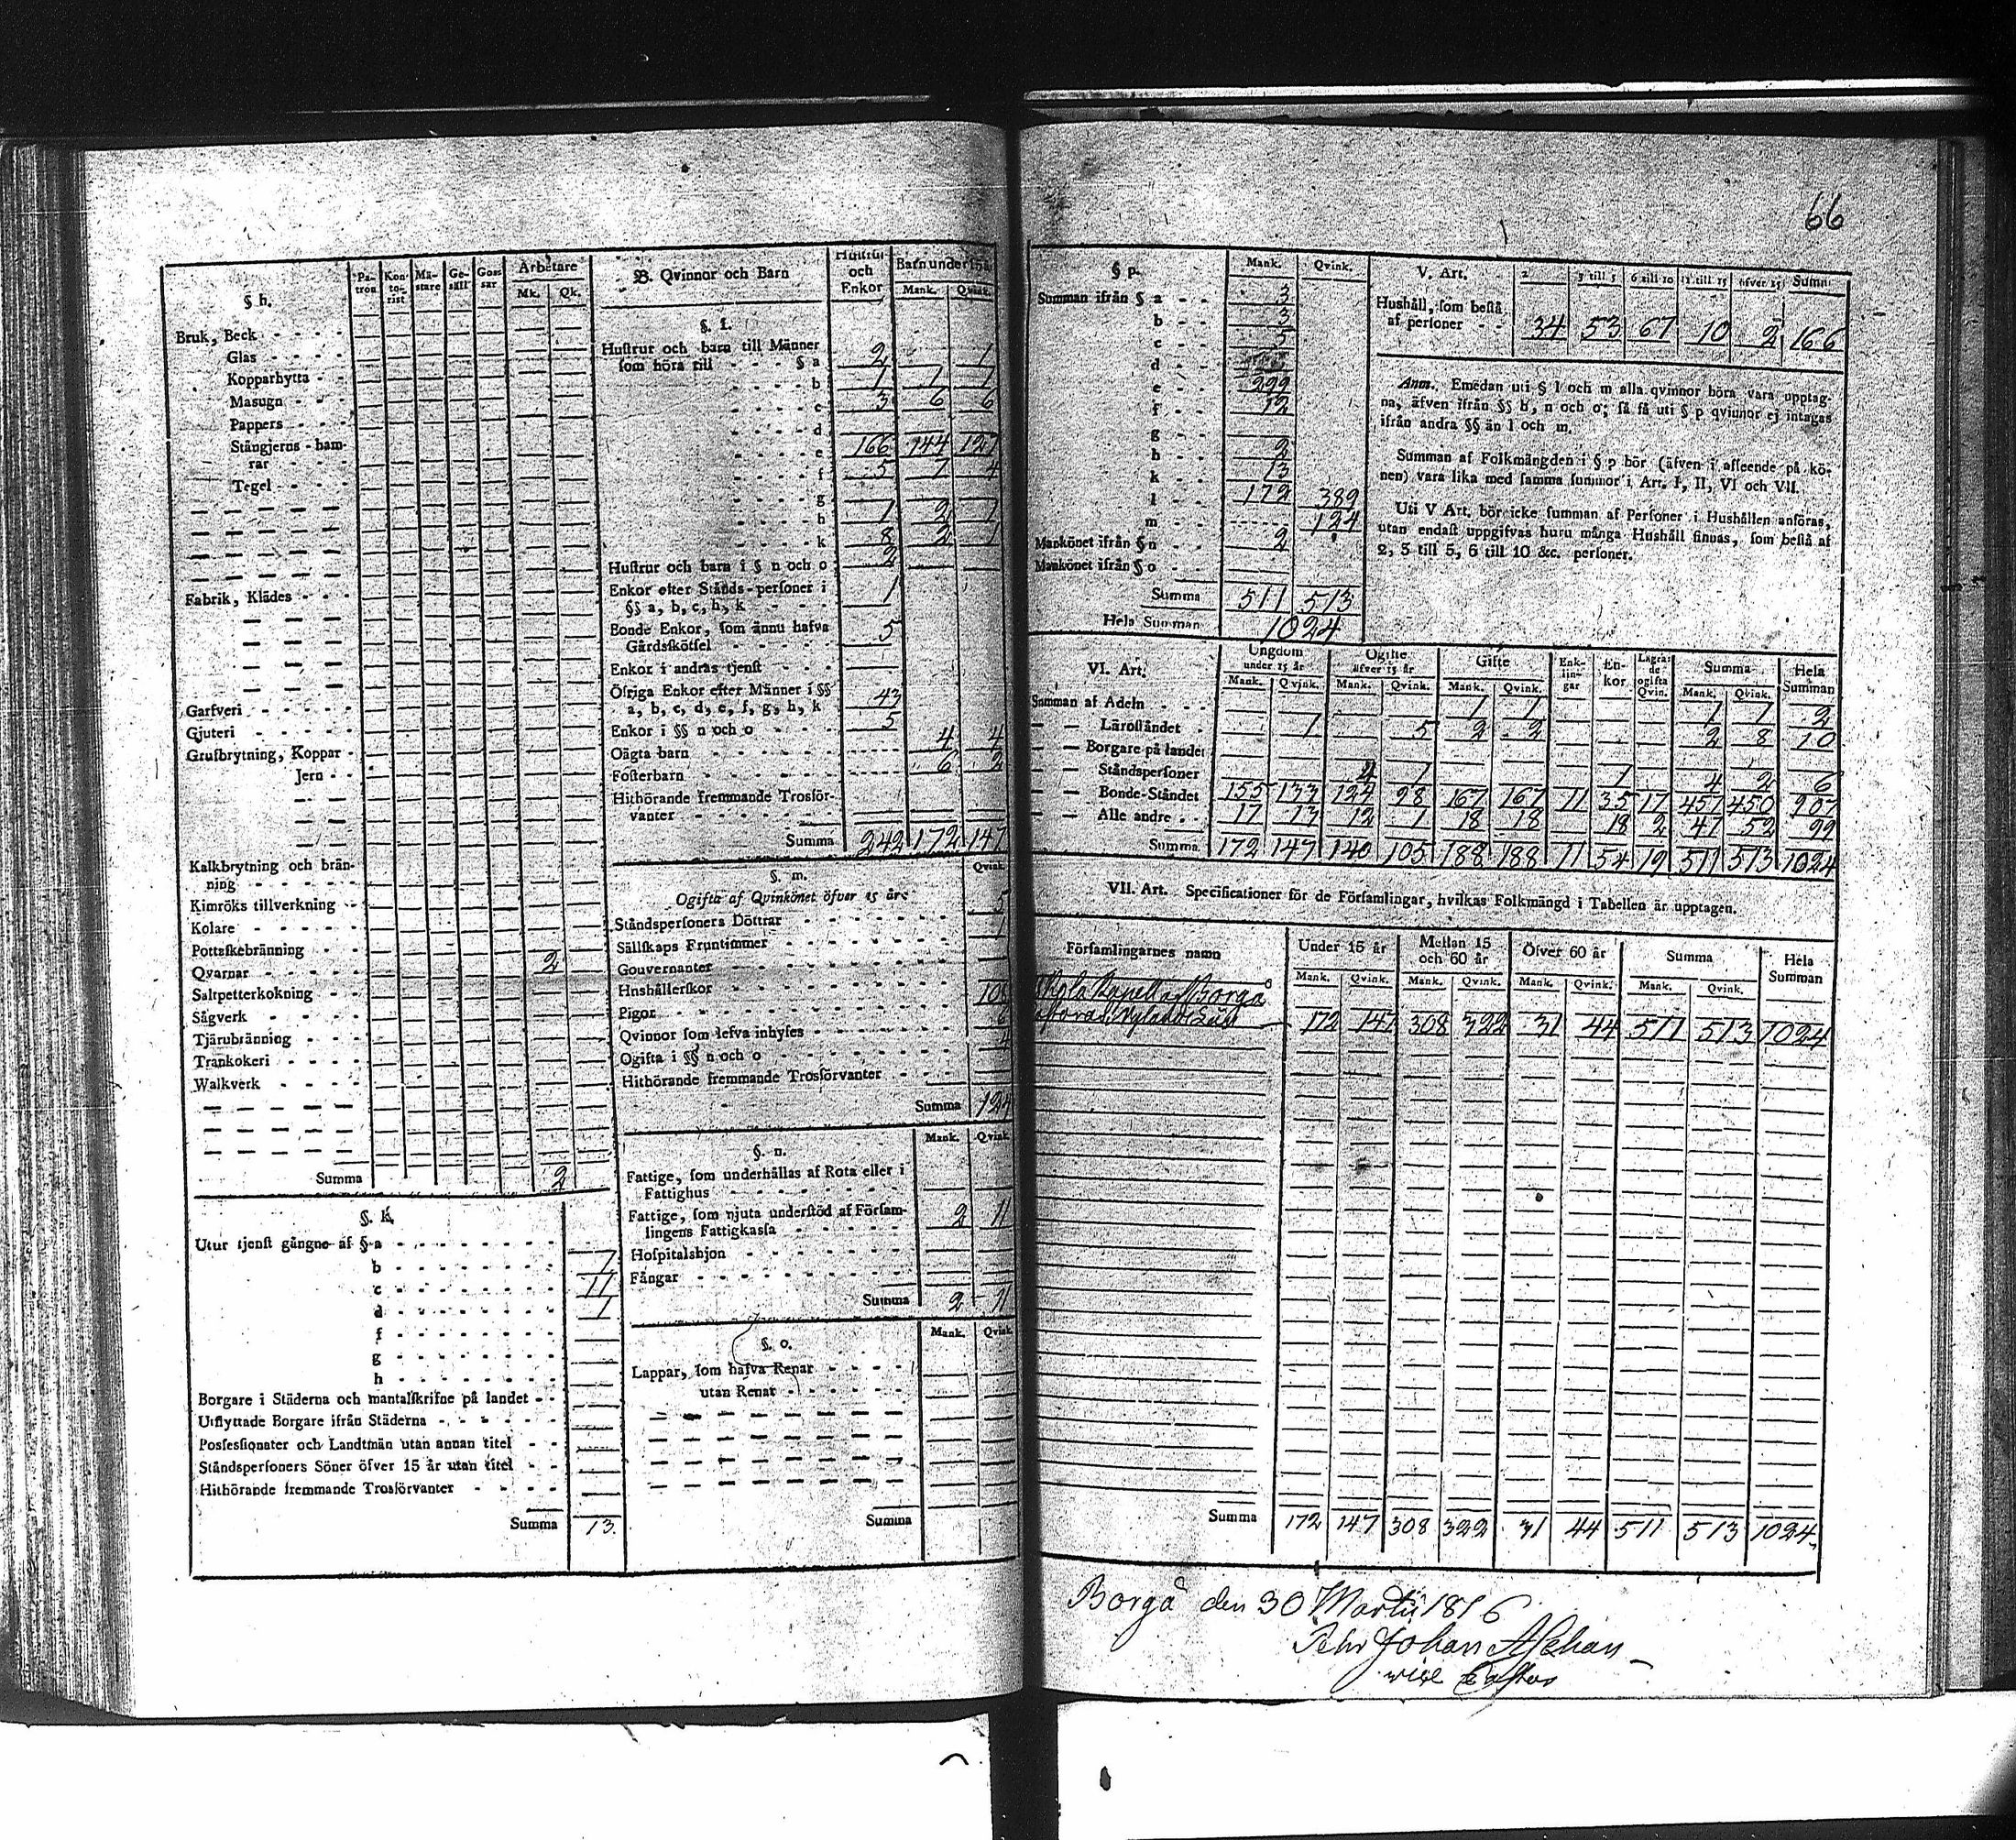 66
§ h.
Pa-tron Kon-to-rist Mä-stare Ge-säll Gos-sar Arbetare
Mk. Qk.
Bruk, Beck
Glas
Kopparhytta
Masugn
Pappers
Stångjerns-ham-
rar
Tegel
Fabrik, Klädes
Garfveri
Gjuteri
Grufbrytning, Koppar
Jern
Kalkbrytning och brän-
ning
Kimröks tillverkning
Kolare
Pottaskebränning
Qvarnar 2
Saltpetterkokning
Sågverk
Tjärubränning
Trankokeri
Walkverk
Summa 2
§. k.
Utur tjenst gångne af § a
b 1
c 11
d 1
f
g
h
Borgare i Städerna och mantalskrifne på landet
Utflyttade Borgare ifrån Städerna
Possessionater och Landtmän utan annan titel
Ståndspersoners Söner öfver 15 år utan titel
Hithörande fremmande Trosförvanter
Summa 13.
B. Qvinnor och Barn
Hustrur och Enkor
Barn under
Mank. Qvink.
§. l.
Hustrur och barn till Männer
som höra till § a 2 1
b 1 1 1
c 3 6 6
d
e 166 144 127
f 5 7 4
g
h 1 2 1
k 8 2 1
Hustrur och barn i § n och o 2
Enkor efter Stånds-personer i
§§ a, b, c, h, k 1
Bonde Enkor, som ännu hafva
Gårdsskötsel 5
Enkor i andras tjenst
Öfriga Enkor efter Männer i §§
a, b, c, d, e, f, g, h, k 43
Enkor i §§ n och o 5
Oägta barn 4 4
Fosterbarn 6 2
Hithörande fremmande Trosför-
vanter
Summa 242 172 147
§. m. Qvink.
Ogifta af Qvinkönet öfver 15 år
Ståndspersoners Döttrar 5
Sällskaps Fruntimmer 1
Gouvernanter
Hushållerskor
Pigor 108
Qvinnor som lefva inhyses 6
Ogifta i §§ n och o 4
Hithörande fremmande Trosförvanter
Summa 124
§. n. Mank. Qvink.
Fattige, som underhållas af Rota eller i
Fattighus
Fattige, som njuta understöd af Försam-
lingens Fattigkassa 2 11
Hospitalshjon
Fångar
Summa 2 11
§. o. Mank. Qvink.
Lappar, som hafva Renar
utan Renar
Summa
§ p. Mank. Qvink.
Summan ifrån § a 3
b 3
c 5
d
e 299
f 12
g
h 2
k 13
l 172 389
m 124
Mankönet ifrån § n 2
Mankönet ifrån § o
Summa 511 513
Hela Summan 1024
V. Art. 2 3 till 5 6 till 10 11 till 15 öfver 15 Summa
Hushåll, som bestå
af personer 34 53 67 10 2 166
Anm. Emedan uti § l och m alla qvinnor böra vara upptag-
na, äfven ifrån §§ h, n och o; så få uti § p qvinnor ej intagas
ifrån andra §§ än l och m.
Summan af Folkmängden i § p bör (äfven i afseende på kö-
nen) vara lika med samma summor i Art. I, II, VI och VII.
Uti V Art. bör icke summan af Personer i Hushållen anföras,
utan endast uppgifvas huru många Hushåll finnas, som bestå af
2, 3 till 5, 6 till 10 &c. personer.
VI. Art. Ungdom under 15 år Ogifte öfver 15 år Gifte Enk-lin-gar En-kor Lägra-de ogifta Qvin. Summa Hela Summan
Mank. Qvink. Mank. Qvink. Mank. Qvink. Mank. Qvink.
Summan af Adeln 1 1 1 1 2
Läroståndet 1 5 2 2 2 8 10
Borgare på landet
Ståndspersoner 4 1 1 4 2 6
Bonde-Ståndet 155 133 124 98 167 167 11 35 17 457 450 907
Alle andre 17 13 12 1 18 18 18 2 47 52 99
Summa 172 147 140 105 188 188 11 54 19 511 513 1024
VII. Art. Specificationer för de Församlingar, hvilkas Folkmängd i Tabellen är upptagen.
Församlingarnes namn Under 15 år Mellan 15 och 60 år Öfver 60 år Summa Hela Summan
Mank. Qvink. Mank. Qvink. Mank. Qvink. Mank. Qvink.
Kapell af Borgå
172 147 308 322 31 44 511 513 1024
Summa 172 147 308 322 31 44 511 513 1024
Borgå den 30 Martii 1816
Pehr Johan Alphan
vice Pastor